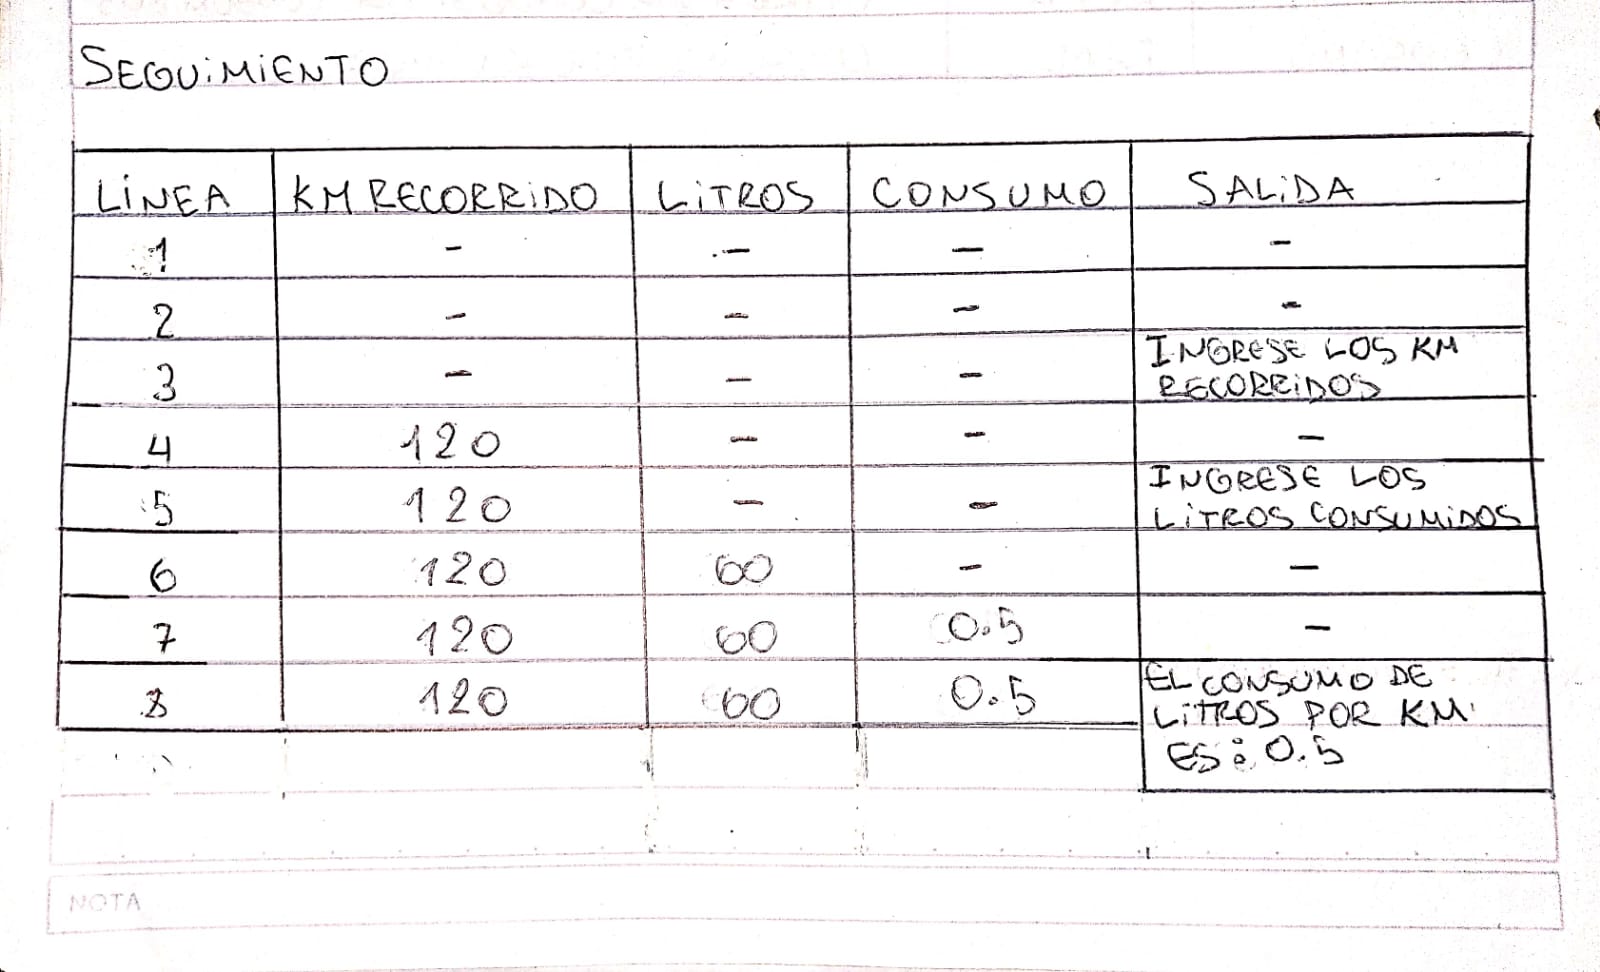 SEGUiMiENTO
LiNEA KM RECORRiDO LiTROS CONSUMO SALiDA
1 - - - -
2 - - - -
3 - - - INGRESE LOS KM
RECORRiDOS
4 120 - - -
5 120 - - INGRESE LOS
LiTROS CONSUMiDOS
6 120 60 - -
7 120 60 0.5 -
8 120 60 0.5 EL CONSUMO DE
LiTROS POR KM
ES: 0.5
NOTA